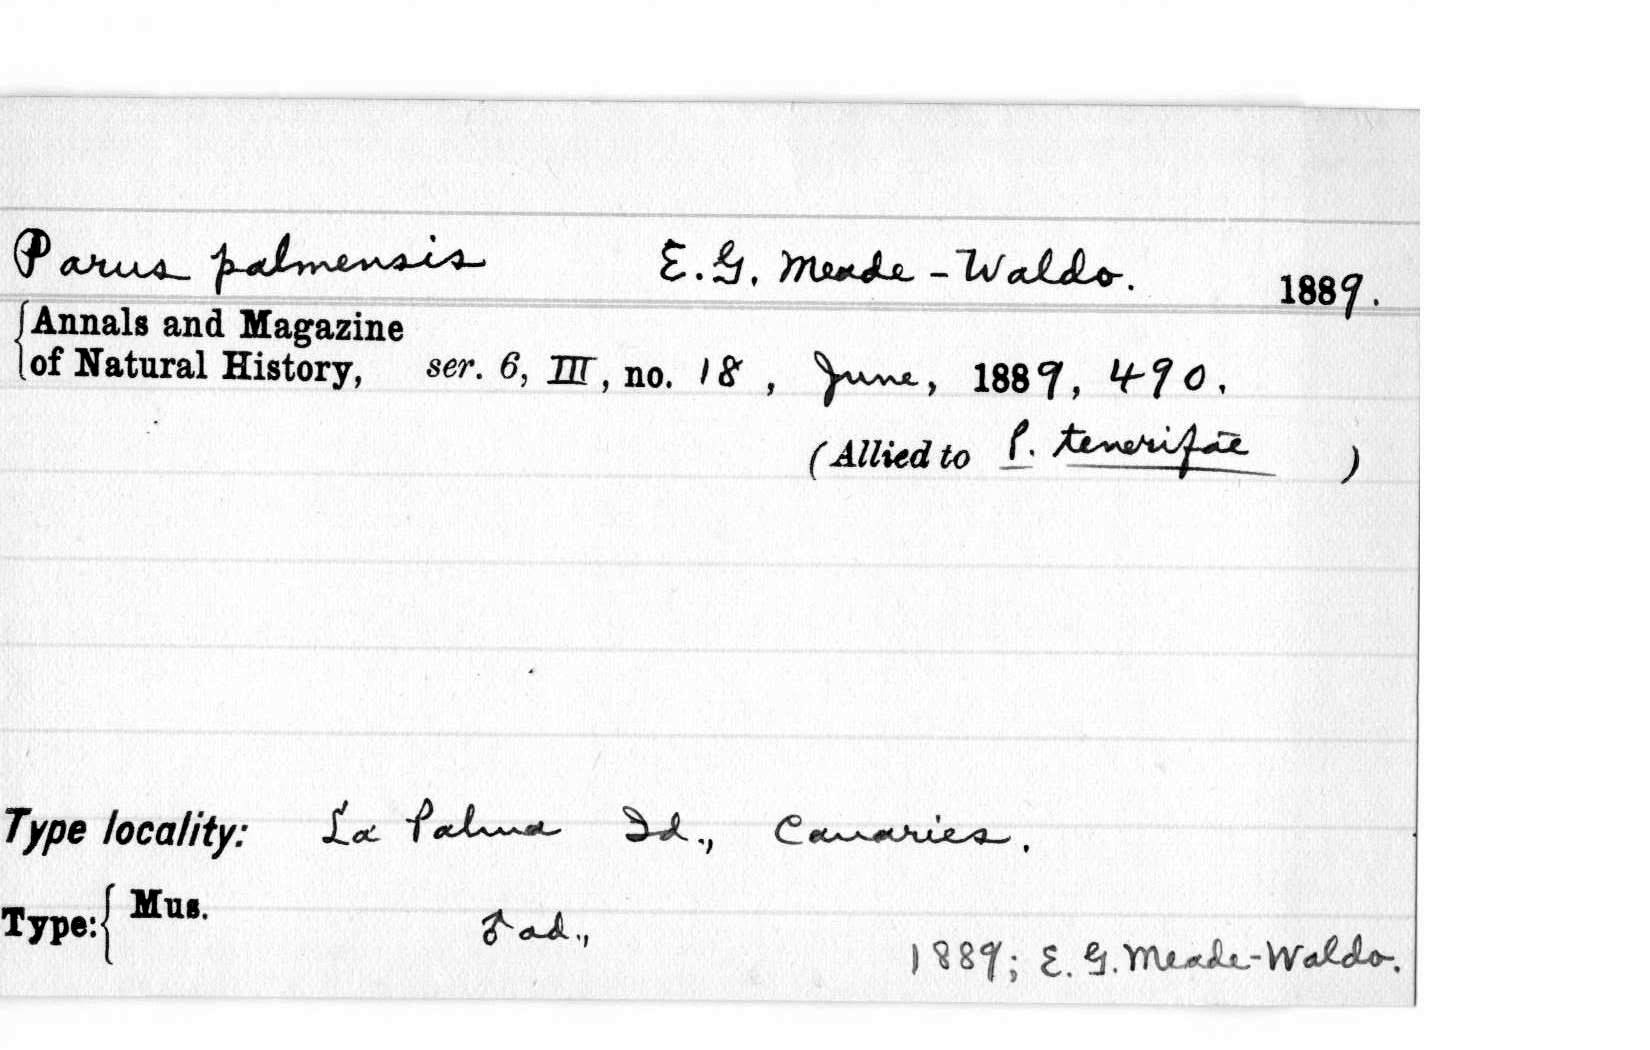 Parus palmensis E. G. Meade-Waldo. 1889.
Annals and Magazine
of Natural History, ser. 6, III, no. 18, June, 1889, 490.
(Allied to P. tenerifae )
Type locality: La Palma Id., Canaries.
Type: Mus. ♂ ad.,
1889; E. G. Meade-Waldo.